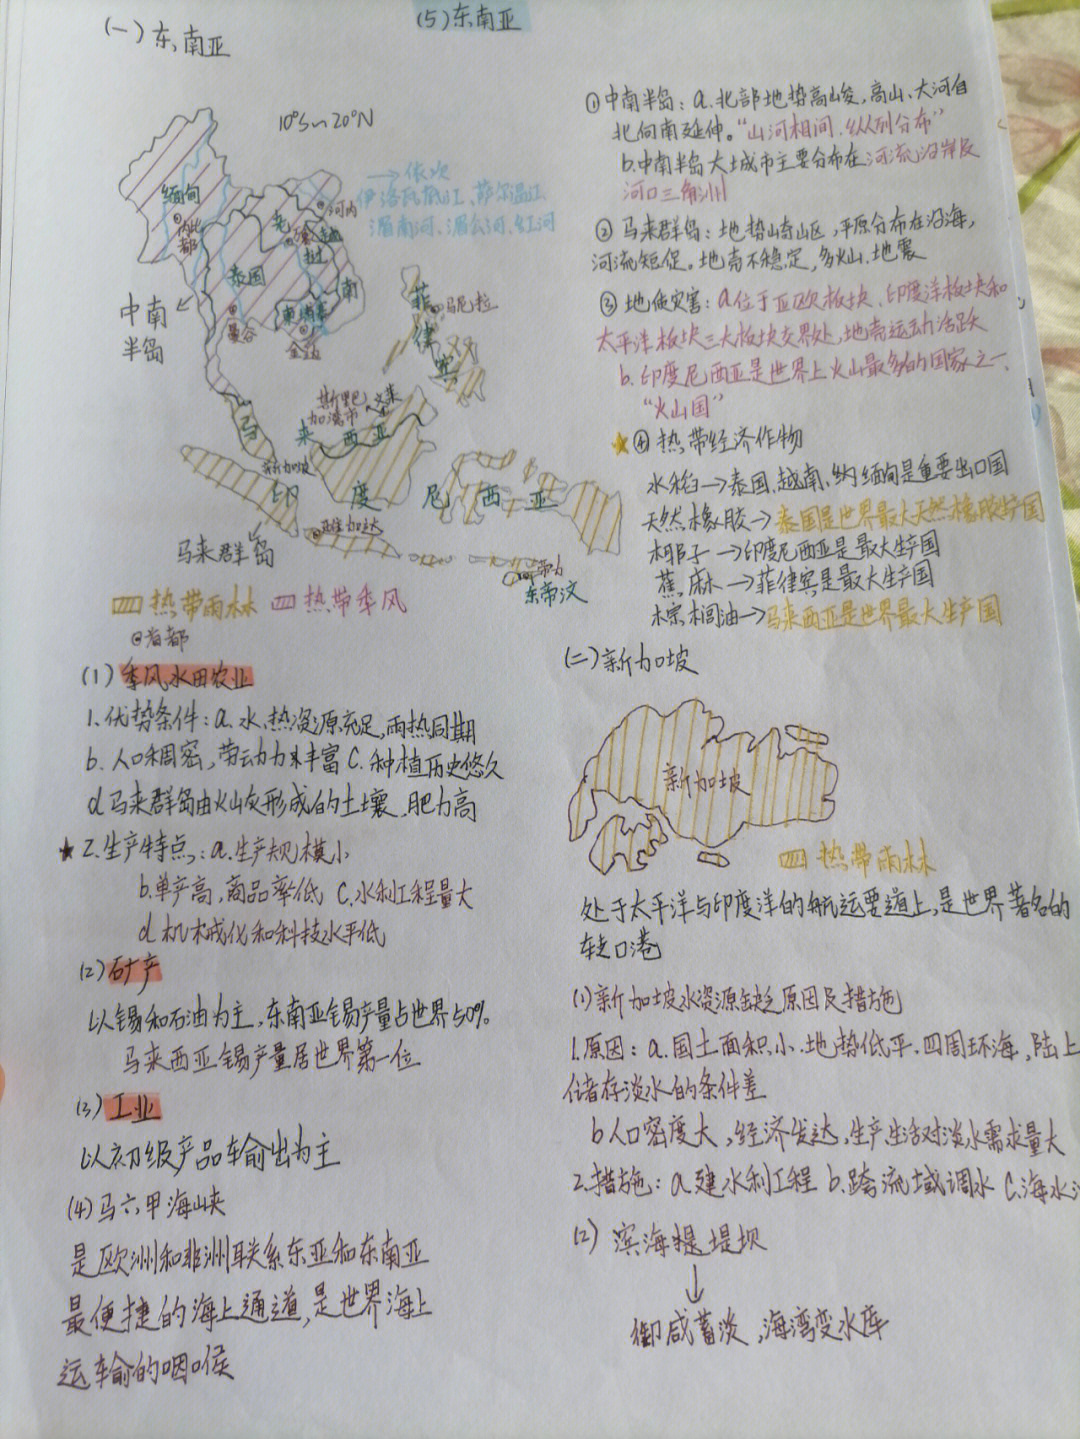 (一)东南亚
(5)东南亚
10°S~20°N
→依次
伊洛瓦底江、萨尔温江
湄南河、湄公河、红河
缅甸
内比都
老
河内
越
南
泰国
柬埔寨
曼谷
金边
中南
半岛
菲
律
宾
马尼拉
斯里巴
加湾市
文莱
马
来
西
亚
新加坡
印
度
尼
西
亚
雅加达
马来群岛
帝力
东帝汶
热带雨林
热带季风
@首都
(1)季风水田农业
1.优势条件:a.水、热资源充足,雨热同期
b.人口稠密,劳动力丰富 c.种植历史悠久
d马来群岛由火山灰形成的土壤,肥力高
★2.生产特点:a.生产规模小
b.单产高,商品率低 c.水利工程量大
d.机械化和科技水平低
(2)矿产
以锡和石油为主,东南亚锡产量占世界50%。
马来西亚锡产量居世界第一位
(3)工业
以初级产品输出为主
(4)马六甲海峡
是欧洲和非洲联系东亚和东南亚
最便捷的海上通道,是世界海上
运输的咽喉
①中南半岛:a.北部地势高峻,高山、大河自
北向南延伸。“山河相间,纵列分布”
b.中南半岛大城市主要分布在河流沿岸及
河口三角洲
②马来群岛:地势崎岖,平原分布在沿海,
河流短促。地壳不稳定,多火山、地震
③地质灾害:a.位于亚欧板块、印度洋板块和
太平洋板块三大板块交界处,地壳运动活跃
b.印度尼西亚是世界上火山最多的国家之一、
“火山国”
★④热带经济作物
水稻→泰国、越南、缅甸是重要出口国
天然橡胶→泰国是世界最大天然橡胶生产国
椰子→印度尼西亚是最大生产国
蕉麻→菲律宾是最大生产国
棕榈油→马来西亚是世界最大生产国
(二)新加坡
新加坡
热带雨林
处于太平洋与印度洋的航运要道上,是世界著名的
转口港
(1)新加坡水资源缺乏原因及措施
1.原因:a.国土面积小、地势低平、四周环海,陆上
储存淡水的条件差
b人口密度大,经济发达,生产、生活对淡水需求量大
2.措施:a.建水利工程 b.跨流域调水 c.海水
(2)滨海堤坝
↓
御咸蓄淡,海湾变水库